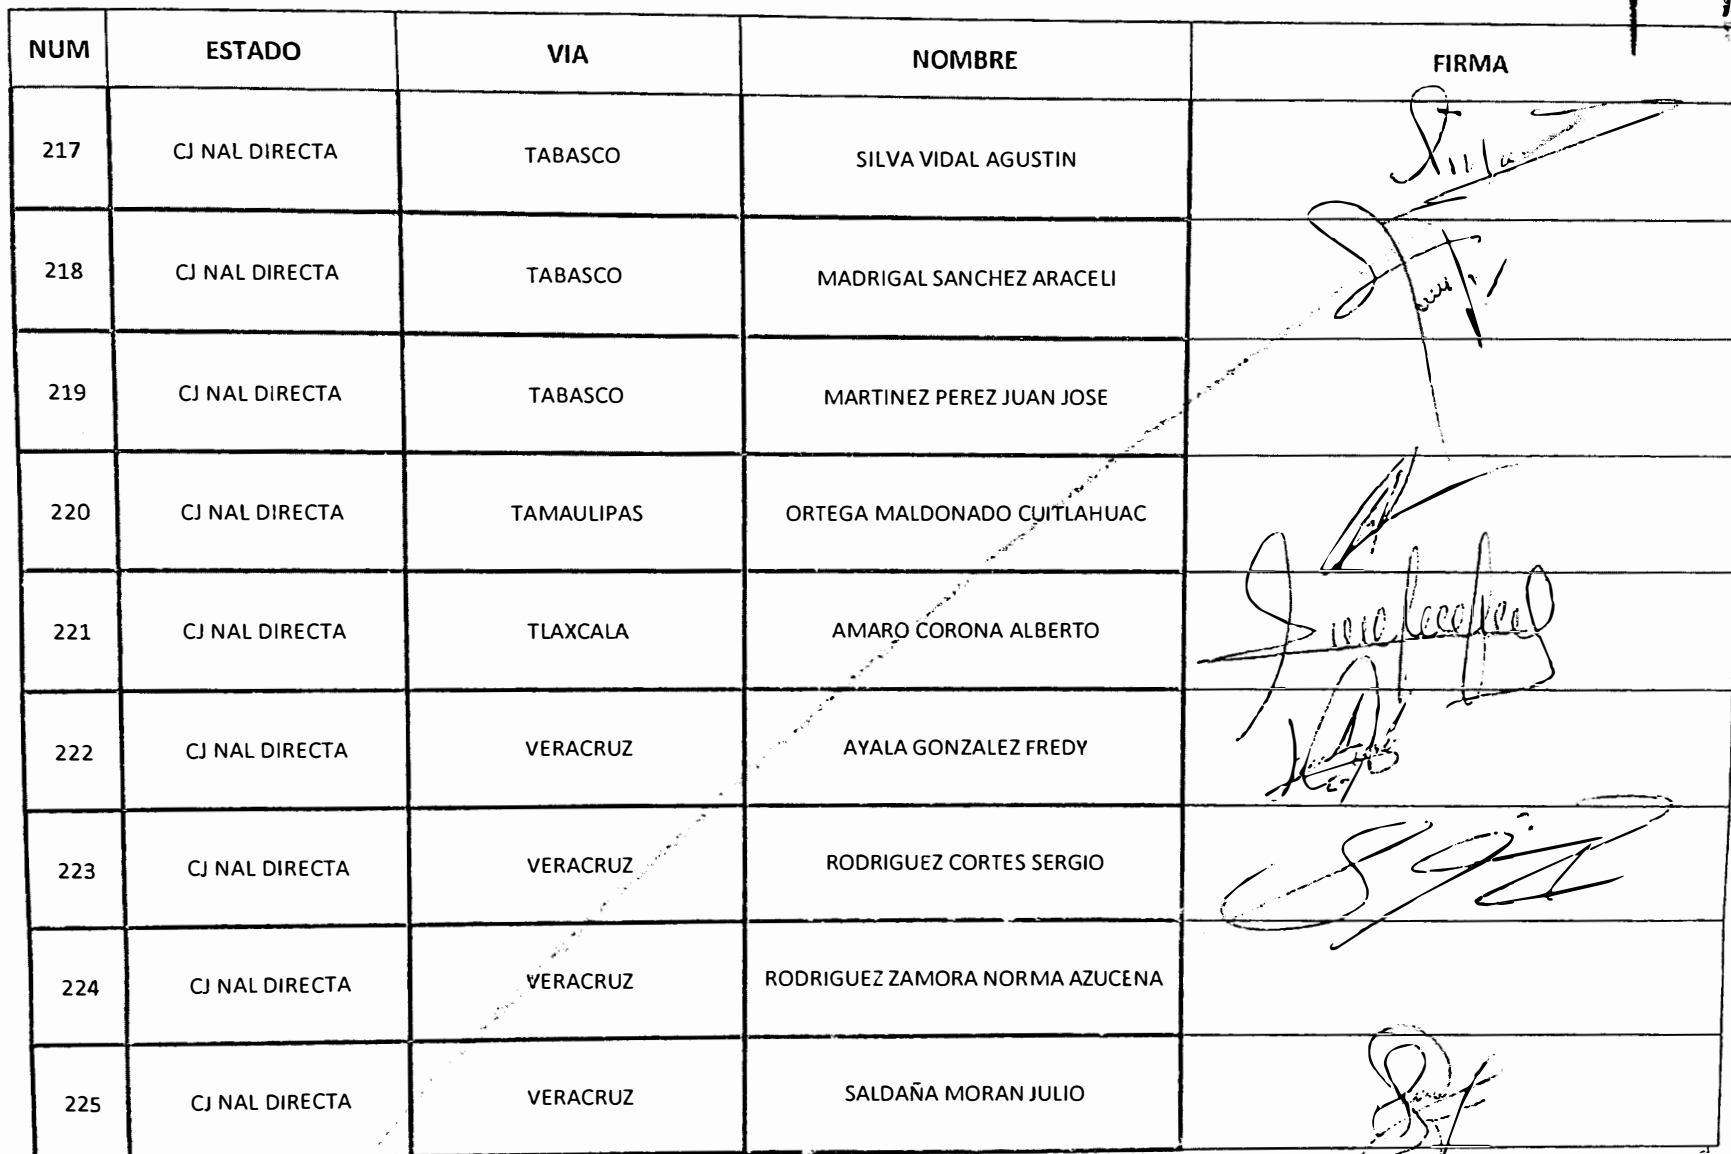 NUM ESTADO VIA NOMBRE FIRMA
217 CJ NAL DIRECTA TABASCO SILVA VIDAL AGUSTIN
218 CJ NAL DIRECTA TABASCO MADRIGAL SANCHEZ ARACELI
219 CJ NAL DIRECTA TABASCO MARTINEZ PEREZ JUAN JOSE
220 CJ NAL DIRECTA TAMAULIPAS ORTEGA MALDONADO CUITLAHUAC
221 CJ NAL DIRECTA TLAXCALA AMARO CORONA ALBERTO
222 CJ NAL DIRECTA VERACRUZ AYALA GONZALEZ FREDY
223 CJ NAL DIRECTA VERACRUZ RODRIGUEZ CORTES SERGIO
224 CJ NAL DIRECTA VERACRUZ RODRIGUEZ ZAMORA NORMA AZUCENA
225 CJ NAL DIRECTA VERACRUZ SALDAÑA MORAN JULIO